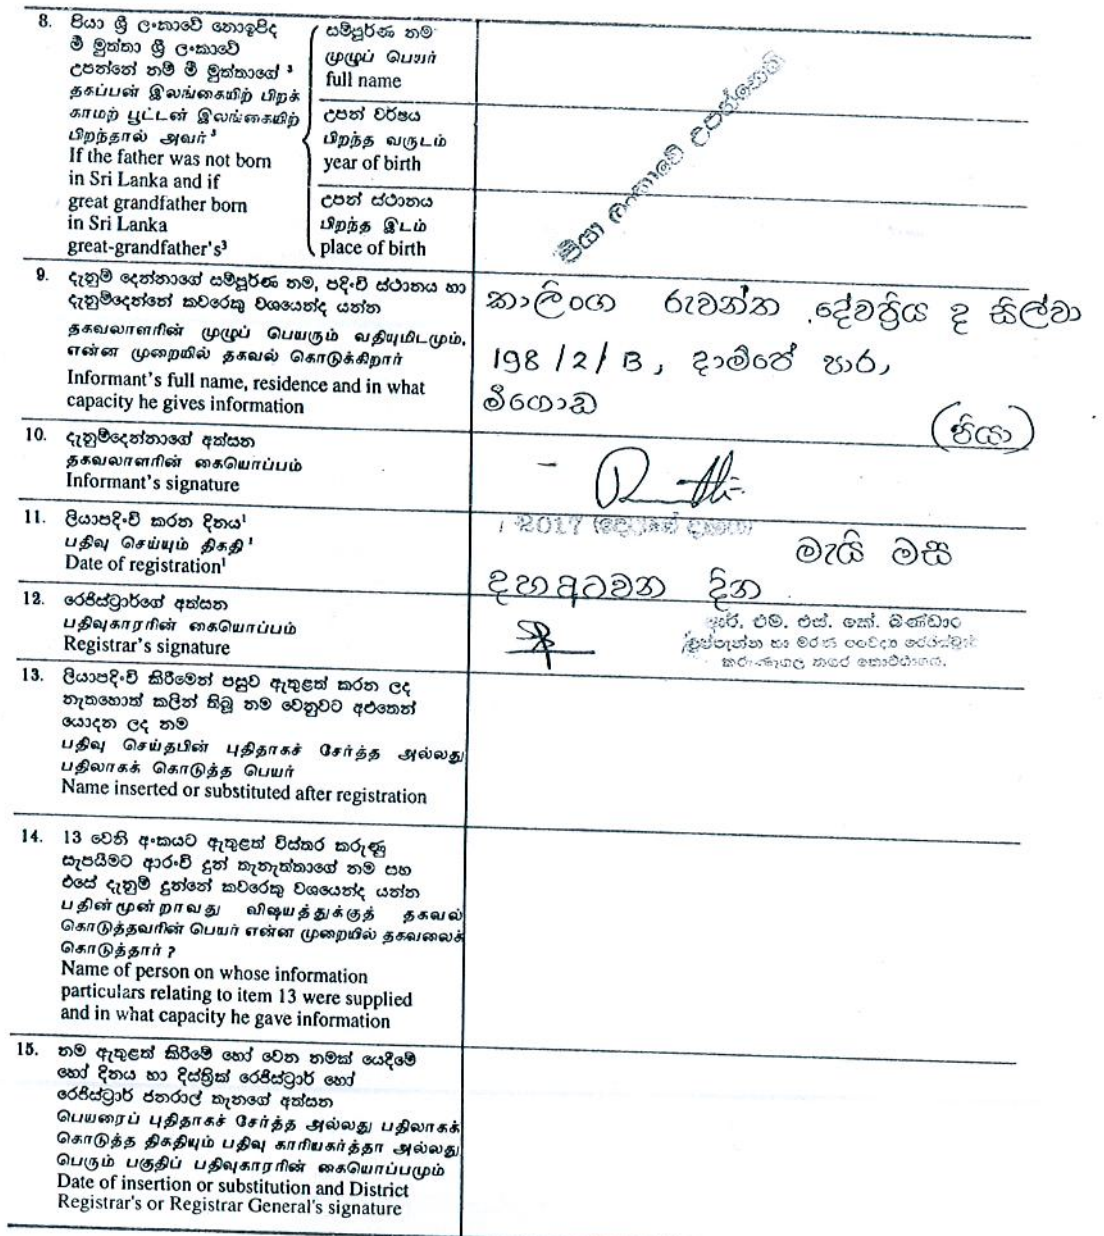 8. පියා ශ්‍රී ලංකාවේ නොඉපිද
මී මුත්තා ශ්‍රී ලංකාවේ
උපන්නේ නම් මී මුත්තාගේ ³
தகப்பன் இலங்கையிற் பிறக்
காமற் பூட்டன் இலங்கையிற்
பிறந்தால் அவர் ³
If the father was not born
in Sri Lanka and if
great grandfather born
in Sri Lanka
great-grandfather's³
සම්පූර්ණ නම
முழுப் பெயர்
full name
උපන් වර්ෂය
பிறந்த வருடம்
year of birth
උපන් ස්ථානය
பிறந்த இடம்
place of birth
පියා ලංකාවේ උපන්නෙකි
9. දැනුම් දෙන්නාගේ සම්පූර්ණ නම, පදිංචි ස්ථානය හා
දැනුම්දෙන්නේ කවරෙකු වශයෙන්ද යන්න
தகவலாளரின் முழுப் பெயரும் வதியுமிடமும்,
என்ன முறையில் தகவல் கொடுக்கிறார்
Informant's full name, residence and in what
capacity he gives information
කාලිංග රුවන්ත දේවප්‍රිය ද සිල්වා
198 /2/ B, දාම්පේ පාර,
මීගොඩ
(පියා)
10. දැනුම්දෙන්නාගේ අත්සන
தகவலாளரின் கையொப்பம்
Informant's signature
11. ලියාපදිංචි කරන දිනය¹
பதிவு செய்யும் திகதி ¹
Date of registration¹
2017 (දෙදහස් දාහත) මැයි මස
දහඅටවන දින
12. රෙජිස්ට්‍රාර්ගේ අත්සන
பதிவுகாரரின் கையொப்பம்
Registrar's signature
ආර්. එම්. එස්. කේ. බණ්ඩාර
උප්පැන්න හා මරණ වෛද්‍ය රෙජිස්ට්‍රාර්
නගර කොට්ඨාශය.
13. ලියාපදිංචි කිරීමෙන් පසුව ඇතුළත් කරන ලද
නැතහොත් කලින් තිබූ නම වෙනුවට අළුතෙන්
යොදන ලද නම
பதிவு செய்தபின் புதிதாகச் சேர்த்த அல்லது
பதிலாகக் கொடுத்த பெயர்
Name inserted or substituted after registration
14. 13 වෙනි අංකයට ඇතුළත් විස්තර කරුණු
සැපයීමට ආරංචි දුන් තැනැත්තාගේ නම සහ
එසේ දැනුම් දුන්නේ කවරෙකු වශයෙන්ද යන්න
பதின்மூன்றாவது விஷயத்துக்குத் தகவல்
கொடுத்தவரின் பெயர் என்ன முறையில் தகவலைக்
கொடுத்தார் ?
Name of person on whose information
particulars relating to item 13 were supplied
and in what capacity he gave information
15. නම ඇතුළත් කිරීමේ හෝ වෙන නමක් යෙදීමේ
හෝ දිනය හා දිස්ත්‍රික් රෙජිස්ට්‍රාර් හෝ
රෙජිස්ට්‍රාර් ජනරාල් තැනගේ අත්සන
பெயரைப் புதிதாகச் சேர்த்த அல்லது பதிலாகக்
கொடுத்த திகதியும் பதிவு காரியகர்த்தா அல்லது
பெரும் பகுதிப் பதிவுகாரரின் கையொப்பமும்
Date of insertion or substitution and District
Registrar's or Registrar General's signature